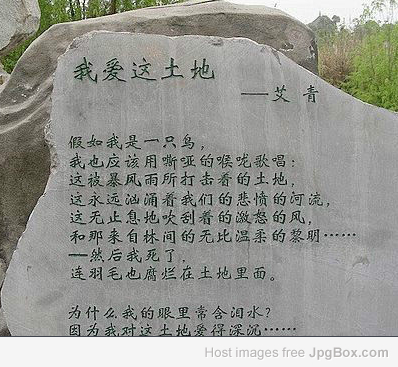 我爱这土地
——艾青
假如我是一只鸟，
我也应该用嘶哑的喉咙歌唱：
这被暴风雨所打击着的土地，
这永远汹涌着我们的悲愤的河流，
这无止息地吹刮着的激怒的风，
和那来自林间的无比温柔的黎明……
——然后我死了，
连羽毛也腐烂在土地里面。
为什么我的眼里常含泪水？
因为我对这土地爱得深沉……
Host images free JpgBox.com